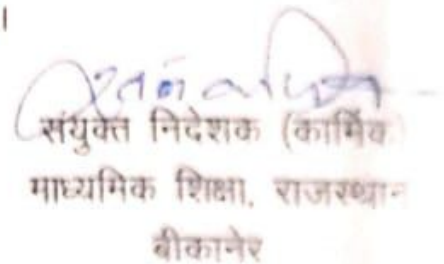 संयुक्त निदेशक (कार्मिक
माध्यमिक शिक्षा, राजस्थान
बीकानेर